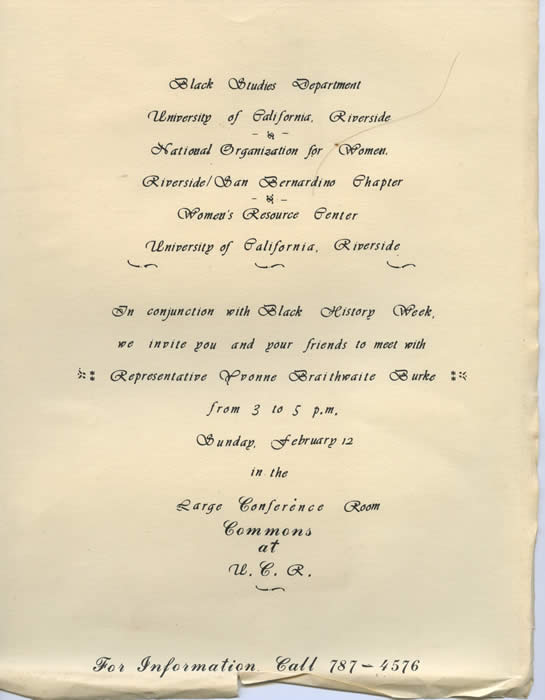 Black Studies Department
University of California, Riverside
National Organization for Women,
Riverside/San Bernardino Chapter
Women's Resource Center
University of California, Riverside
In conjunction with Black History Week,
we invite you and your friends to meet with
Representative Yvonne Braithwaite Burke
from 3 to 5 p.m.
Sunday, February 12
in the
Large Conference Room
Commons
at
U.C.R.
For Information Call 787-4576